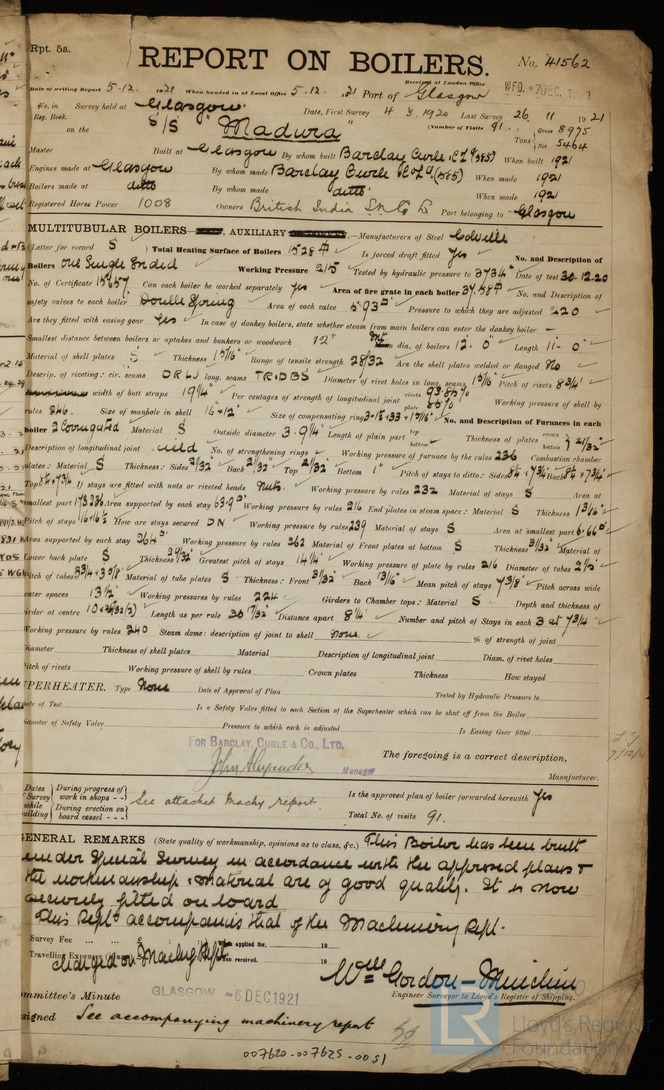 Rpt. 5a.
REPORT ON BOILERS.
No. 41562
Received at London Office
WED. 7 DEC. 1921
Date of writing Report 5-12- 1921 When handed in at Local Office 5-12- 21 Port of Glasgow
No. in Survey held at Glasgow. Date, First Survey 4 3 1920 Last Survey 26 11 1921
Reg. Book. (Number of Visits 91.)
on the S/S "Madura" Tons { Gross 8975
Net 5464
Master Built at Glasgow By whom built Barclay Curle & Co Ld (585) When built 1921
Engines made at Glasgow By whom made Barclay Curle & Co Ld (585) When made 1921
Boilers made at ditto By whom made ditto When made 1921
Registered Horse Power 1008 Owners British India S.N. Co Ld Port belonging to Glasgow
MULTITUBULAR BOILERS AUXILIARY Manufacturers of Steel Colvilles
(Letter for record S ) Total Heating Surface of Boilers 1528 Is forced draft fitted yes No. and Description of
Boilers One Single Ended Working Pressure 215 Tested by hydraulic pressure to 373 Date of test 30.12.20
No. of Certificate 15657 Can each boiler be worked separately yes Area of fire grate in each boiler No. and Description of
safety valves to each boiler Double Spring Area of each valve 5.93 Pressure to which they are adjusted 220
Are they fitted with easing gear yes In case of donkey boilers, state whether steam from main boilers can enter the donkey boiler -
Smallest distance between boilers or uptakes and bunkers or woodwork 12" dia. of boilers 12.0" Length 11-0"
Material of shell plates S Thickness 15/16" Range of tensile strength 28/32 Are the shell plates welded or flanged No
Descrip. of riveting: cir. seams DR LJ long. seams TR.DBS Diameter of rivet holes in long. seams 15/16 Pitch of rivets 8 3/4"
width of butt straps 19 1/4" Per centages of strength of longitudinal joint rivets plate 85% Working pressure of shell by
rules 246. Size of manhole in shell 16 × 12" Size of compensating ring No. and Description of Furnaces in each
boiler 2 Corrugated Material S Outside diameter 3-9 1/4" Length of plain part top bottom Thickness of plates crown bottom } 21/32"
Description of longitudinal joint weld No. of strengthening rings Working pressure of furnace by the rules 236 Combustion chamber
plates: Material S Thickness: Sides 21/32" Back 21/32 Top 21/32 Bottom 1" Pitch of stays to ditto: Sides 8 1/4 × 7 3/4 Back 8 1/4 × 7 3/4
Top 8 1/4 × 7 3/4 If stays are fitted with nuts or riveted heads Nuts. Working pressure by rules 232 Material of stays S Area at
smallest part Area supported by each stay 63.9 Working pressure by rules 216 End plates in steam space: Material S Thickness 1 3/16"
Pitch of stays 16 × 16 1/2 How are stays secured DN Working pressure by rules 239 Material of stays S Area at smallest part 6.66
Area supported by each stay 264 Working pressure by rules 262 Material of Front plates at bottom S Thickness Material of
Lower back plate S Thickness 29/32 Greatest pitch of stays 14 1/4" Working pressure of plate by rules 216 Diameter of tubes 2 1/2"
Pitch of tubes 3 3/4 × 3 5/8 Material of tube plates S Thickness: Front Back 13/16" Mean pitch of stays 7 3/8" Pitch across wide
water spaces 13 1/2" Working pressures by rules 224 Girders to Chamber tops: Material S Depth and thickness of
girder at centre Length as per rule 30 7/32 Distance apart 8 1/4 Number and pitch of Stays in each 3 at 7 3/4
Working pressure by rules 240 Steam dome: description of joint to shell None. % of strength of joint
Diameter Thickness of shell plates Material Description of longitudinal joint Diam. of rivet holes
Pitch of rivets Working pressure of shell by rules Crown plates Thickness How stayed
SUPERHEATER. Type None Date of Approval of Plan Tested by Hydraulic Pressure to
Date of Test Is a Safety Valve fitted to each Section of the Superheater which can be shut off from the Boiler
Diameter of Safety Valve Pressure to which each is adjusted Is Easing Gear fitted
FOR BARCLAY, CURLE & CO., LTD.
John Alexander Manager
The foregoing is a correct description,
Manufacturer.
Dates of Survey while building { During progress of work in shops - - During erection on board vessel - - } See attached Machy report. Is the approved plan of boiler forwarded herewith Yes
Total No. of visits 91.
GENERAL REMARKS (State quality of workmanship, opinions as to class, &c.) This Boiler has been built
under Special Survey in accordance with the approved plans &
the workmanship & material are of good quality. It is now
securely fitted on board
This Rept accompanies that of the Machinery Rept.
Survey Fee applied for, 19
Travelling Expenses received, 19
charged on Machy Rept
Wm Gordon-Muirchie
Engineer Surveyor to Lloyd's Register of Shipping.
Committee's Minute GLASGOW -6 DEC 1921
Assigned See accompanying machinery report
LR Lloyd's Register Foundation
007620-007625-0051